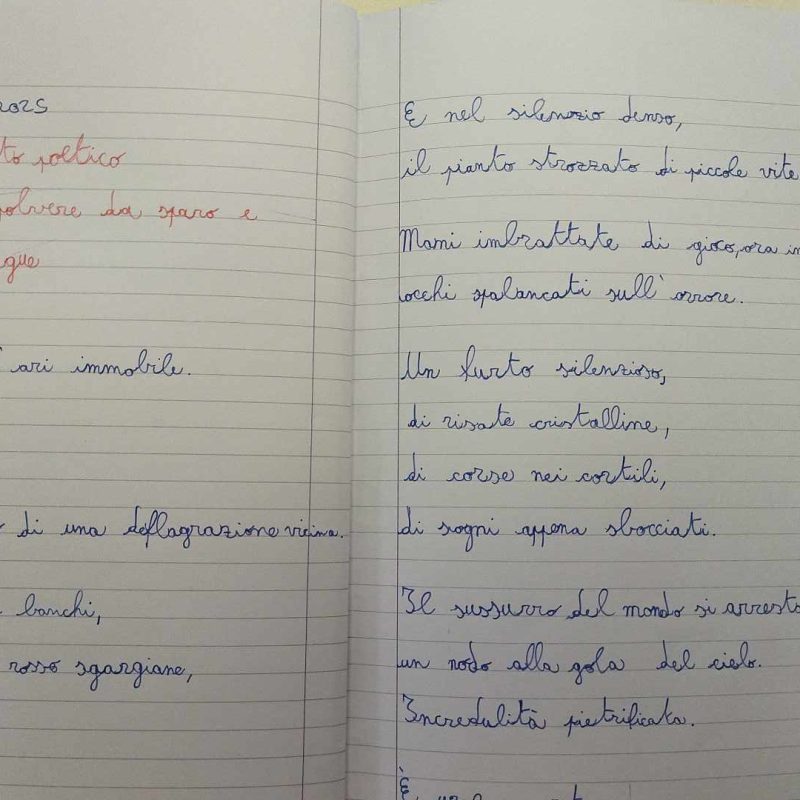 2025
to poetico
polvere da sparo e
gue
ari immobile.
di una deflagrazione vicina.
banchi,
rosso sgargiane,
E nel silenzio denso,
il pianto strozzato di piccole vite
Mani imbrattate di gioco, ora in
occhi spalancati sull'orrore.
Un furto silenzioso,
di risate cristalline,
di corse nei cortili,
di sogni appena sbocciati.
Il sussurro del mondo si arresta
un nodo alla gola del cielo.
Incredulità pietrificata.
È